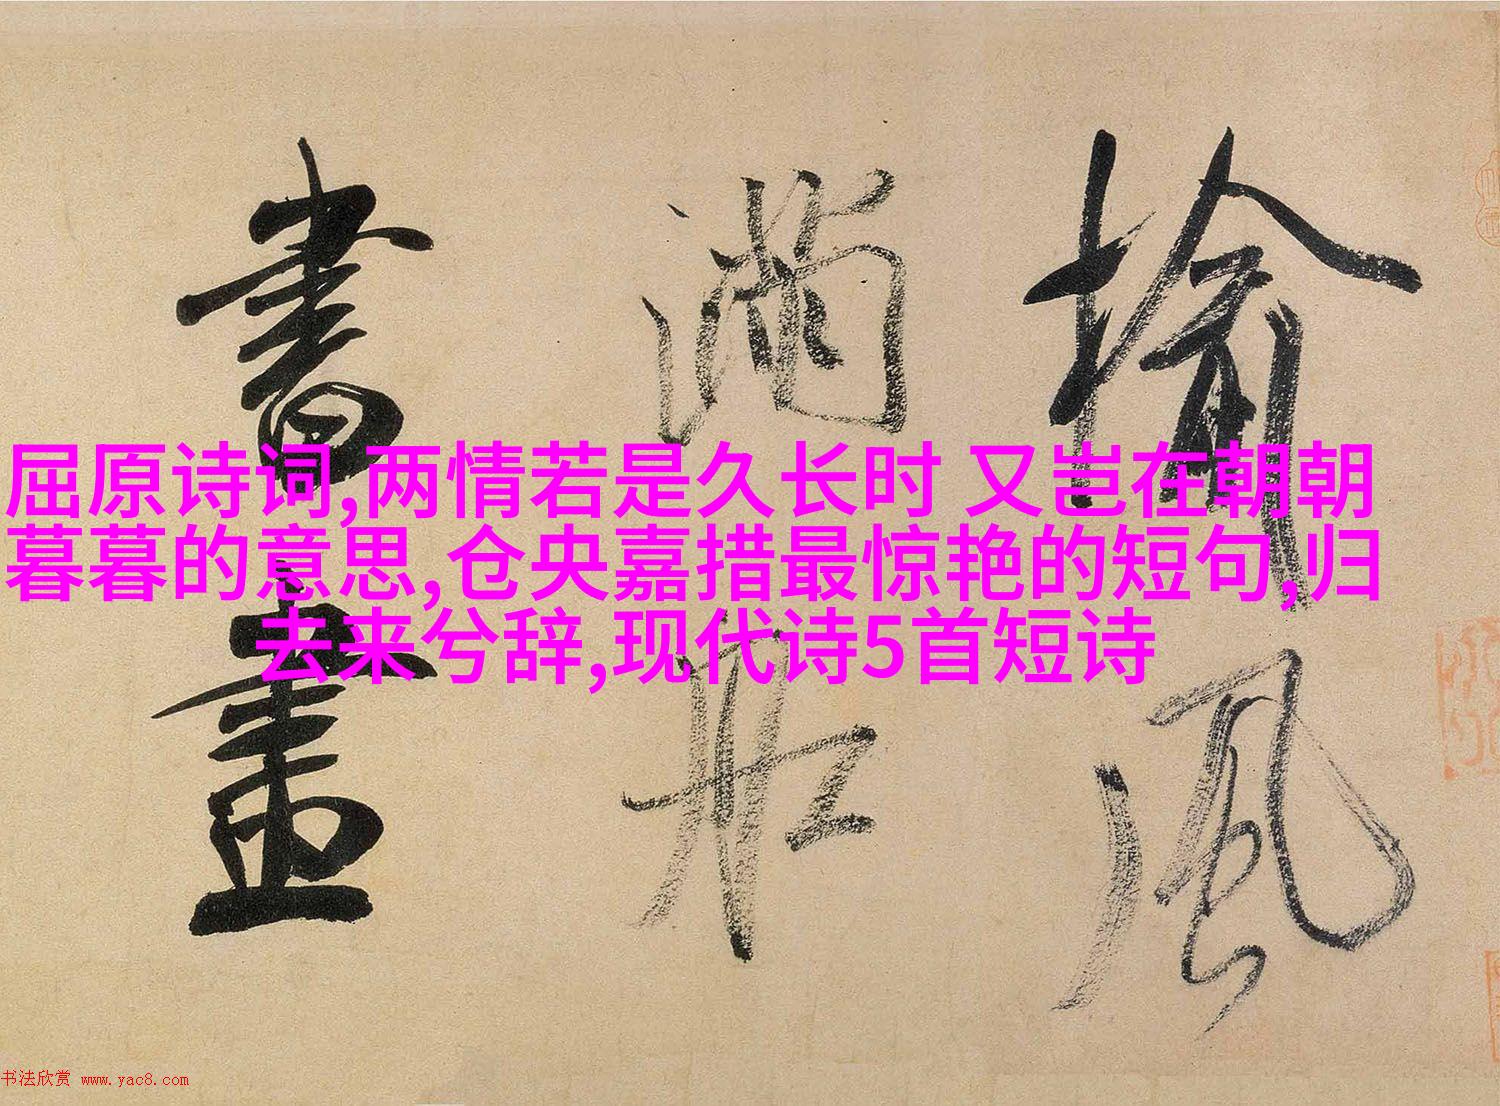 屈原诗词,两情若是久长时 又岂在朝朝
暮暮的意思,仓央嘉措最惊艳的短句,归
去来兮辞,现代诗5首短诗
榆風
滿舡
書畫
书法欣赏 www.yac8.com